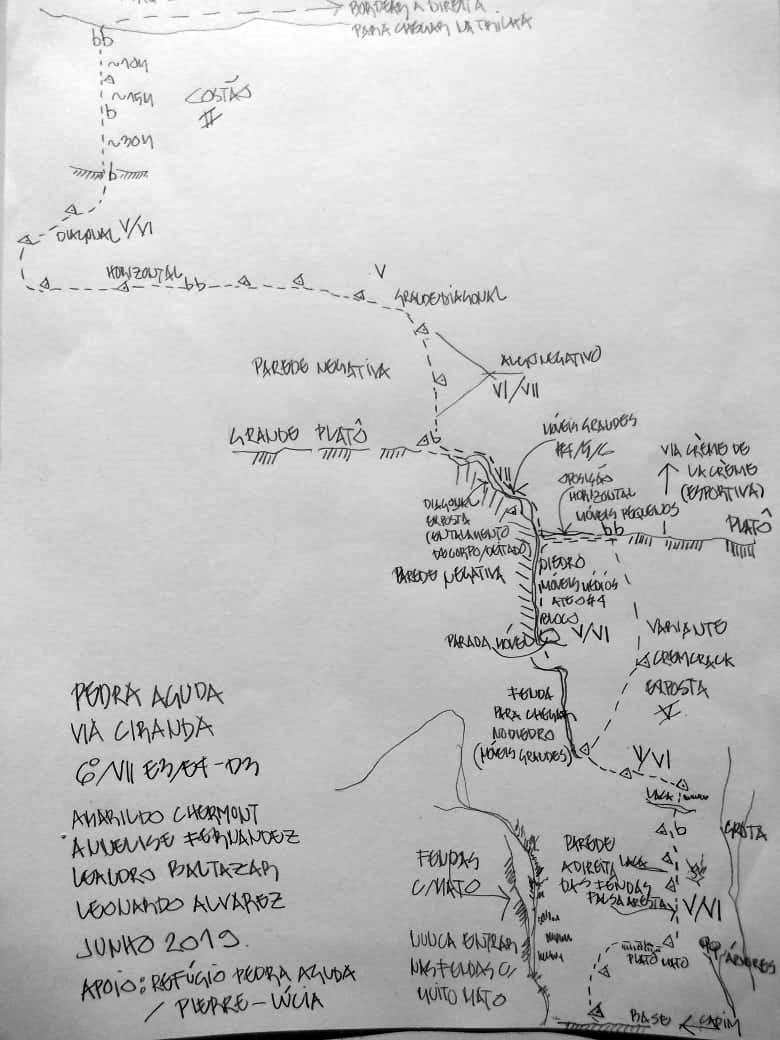 BORDEAR A DIREITA
PARA CHEGAR NA TRILHA
bb
~10M
~15M
b
~30M
b
COSTÃO
II
DIAGONAL V/VI
HORIZONTAL
bb
V
GRANDE DIAGONAL
PAREDE NEGATIVA
ALGO NEGATIVO
VI/VII
GRANDE PLATÔ
b
MÓVEIS GRANDES
#4/5/6
VII
VIA CRÈME DE
LA CRÈME
(ESPORTIVA)
OPOSIÇÃO
HORIZONTAL
MÓVEIS PEQUENOS
bb
PLATÔ
DIAGONAL
EXPOSTA
(ENTALAMENTO
DE CORPO/DEITADO)
PAREDE NEGATIVA
DIEDRO
MÓVEIS MÉDIOS
ATE O #4
BLOCO
V/VI
PARADA MÓVEL
VARIANTE
CREMCRACK
EXPOSTA
V
FENDA
PARA CHEGAR
NO DIEDRO
(MÓVEIS GRANDES)
V/VI
LACA
b
GROTA
PAREDE
A DIREITA
DAS FENDAS
LACA
FALSA ARESTA
V/VI
PLATÔ MATO
ÁRVORES
BASE
CAPIM
FENDAS
C/MATO
NUNCA ENTRAR
NAS FENDAS C/
MUITO MATO
PEDRA AGUDA
VIA CIRANDA
6º/VII E3/E4-D3
AMARILDO CHERMONT
ANNELISE FERNANDEZ
LEANDRO BALTAZAR
LEONARDO ALVAREZ
JUNHO 2019.
APOIO: REFÚGIO PEDRA AGUDA
/ PIERRE-LÚCIA